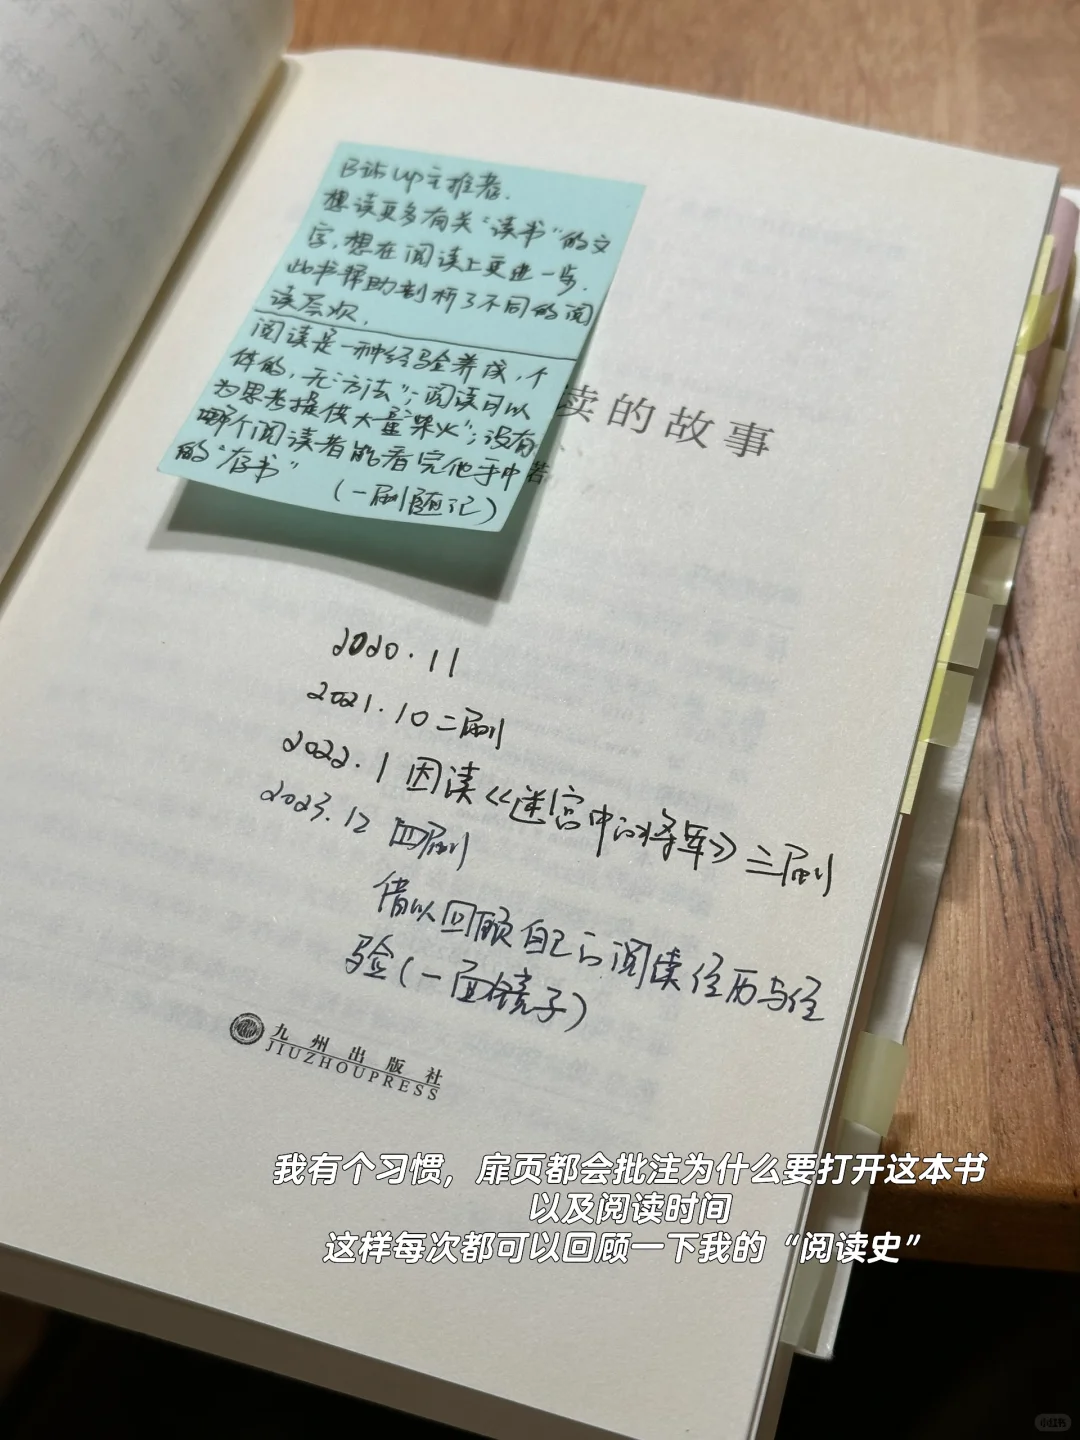 B站up主推荐.
想读更多有关“读书”的文
字,想在阅读上更进一步.
此书帮助剖析了不同的阅
读层次.
阅读是一种经验养成,个
体的,无“方法”;阅读可以
为思考提供大量“柴火”;没有
哪个阅读者能看完他手中
的“存书”
(一刷随记)
读的故事
2020.11
2021.10 二刷
2022.1 因读《迷宫中的将军》三刷
2023.12 四刷
借以回顾自己的阅读经历与经
验(一面镜子)
九州出版社
JIUZHOUPRESS
我有个习惯，扉页都会批注为什么要打开这本书
以及阅读时间
这样每次都可以回顾一下我的“阅读史”
小红书